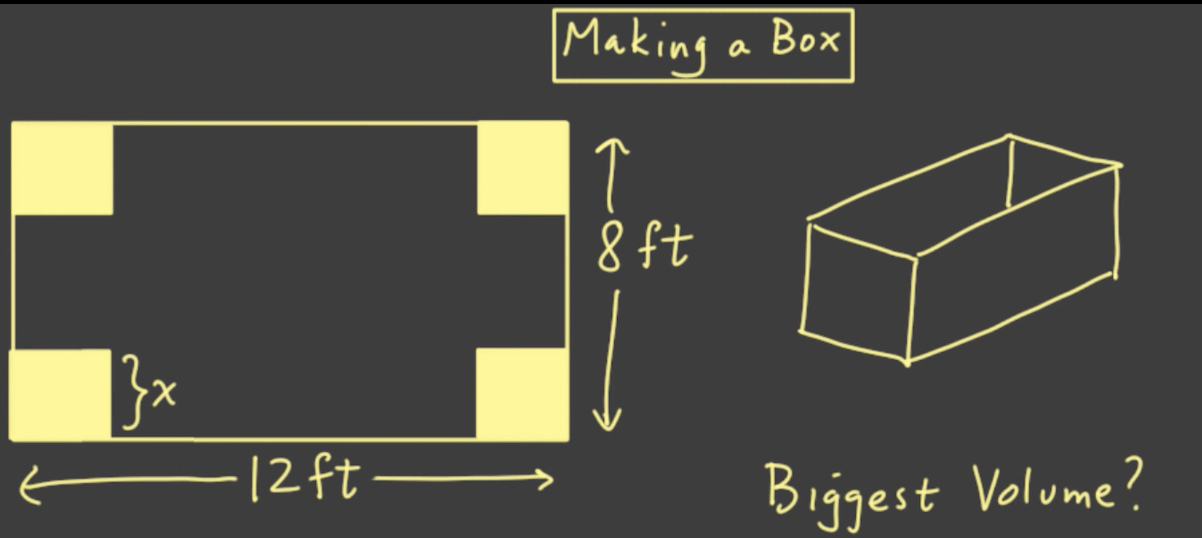 Making a Box
8 ft
}x
12 ft
Biggest Volume?